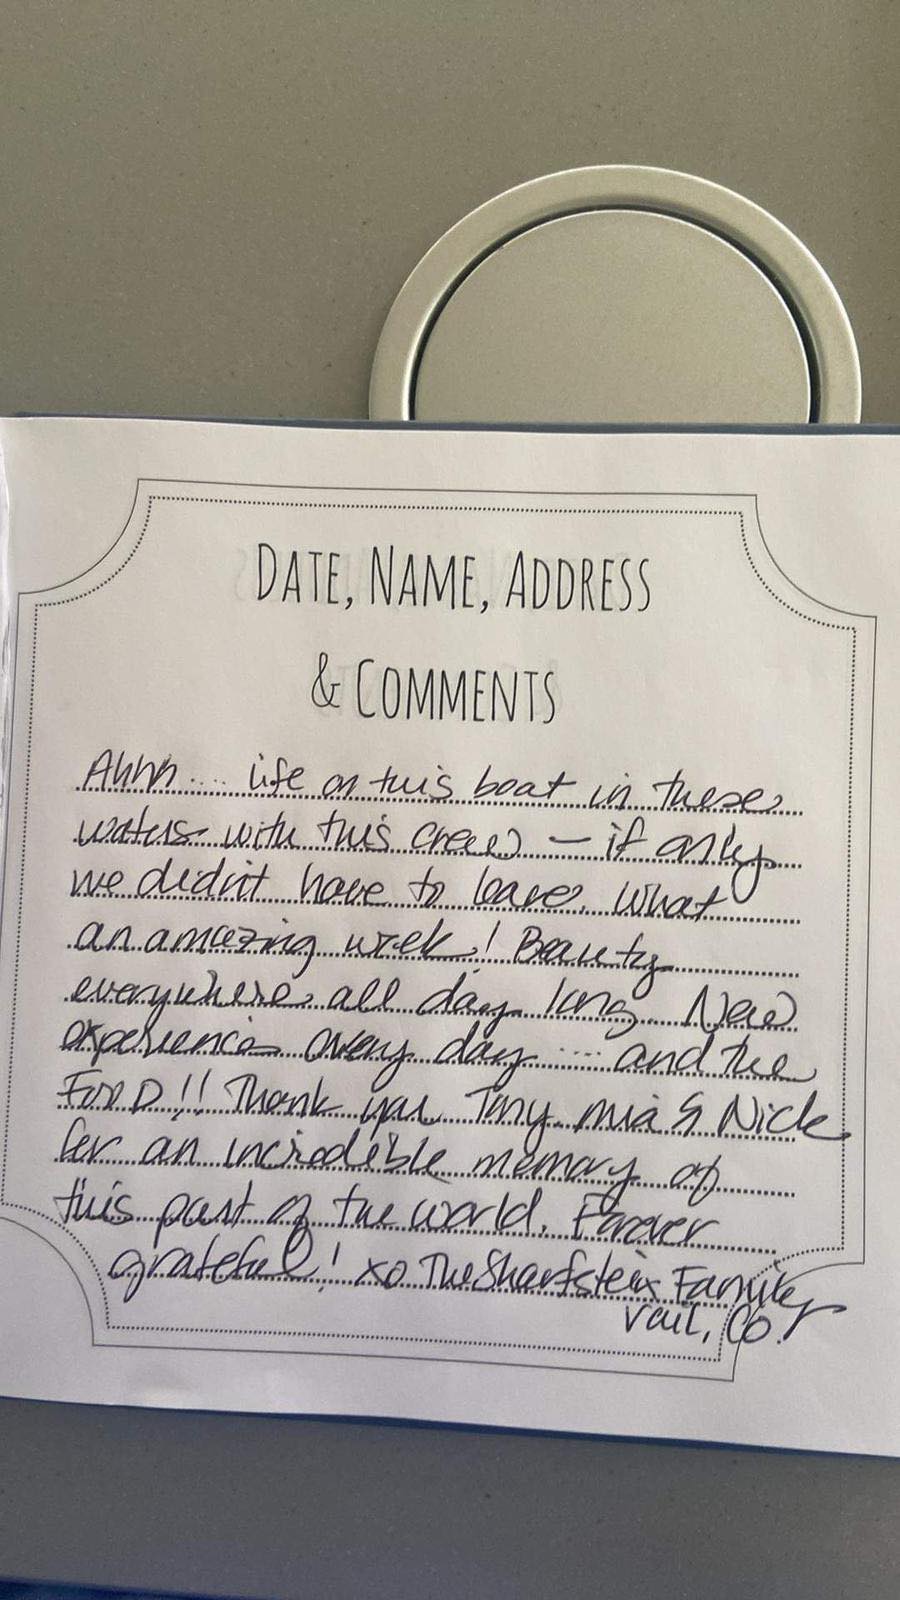 DATE, NAME, ADDRESS
& COMMENTS
Ahhh.... life on this boat in these
waters with this crew — if only
we didn't have to leave. What
an amazing week! Beauty
everywhere, all day long. New
experiences every day .... and the
FOOD!! Thank you Tony, Mia & Nick
for an incredible memory of
this part of the world. Forever
grateful! xo The Sharfstein Family
Vail, CO